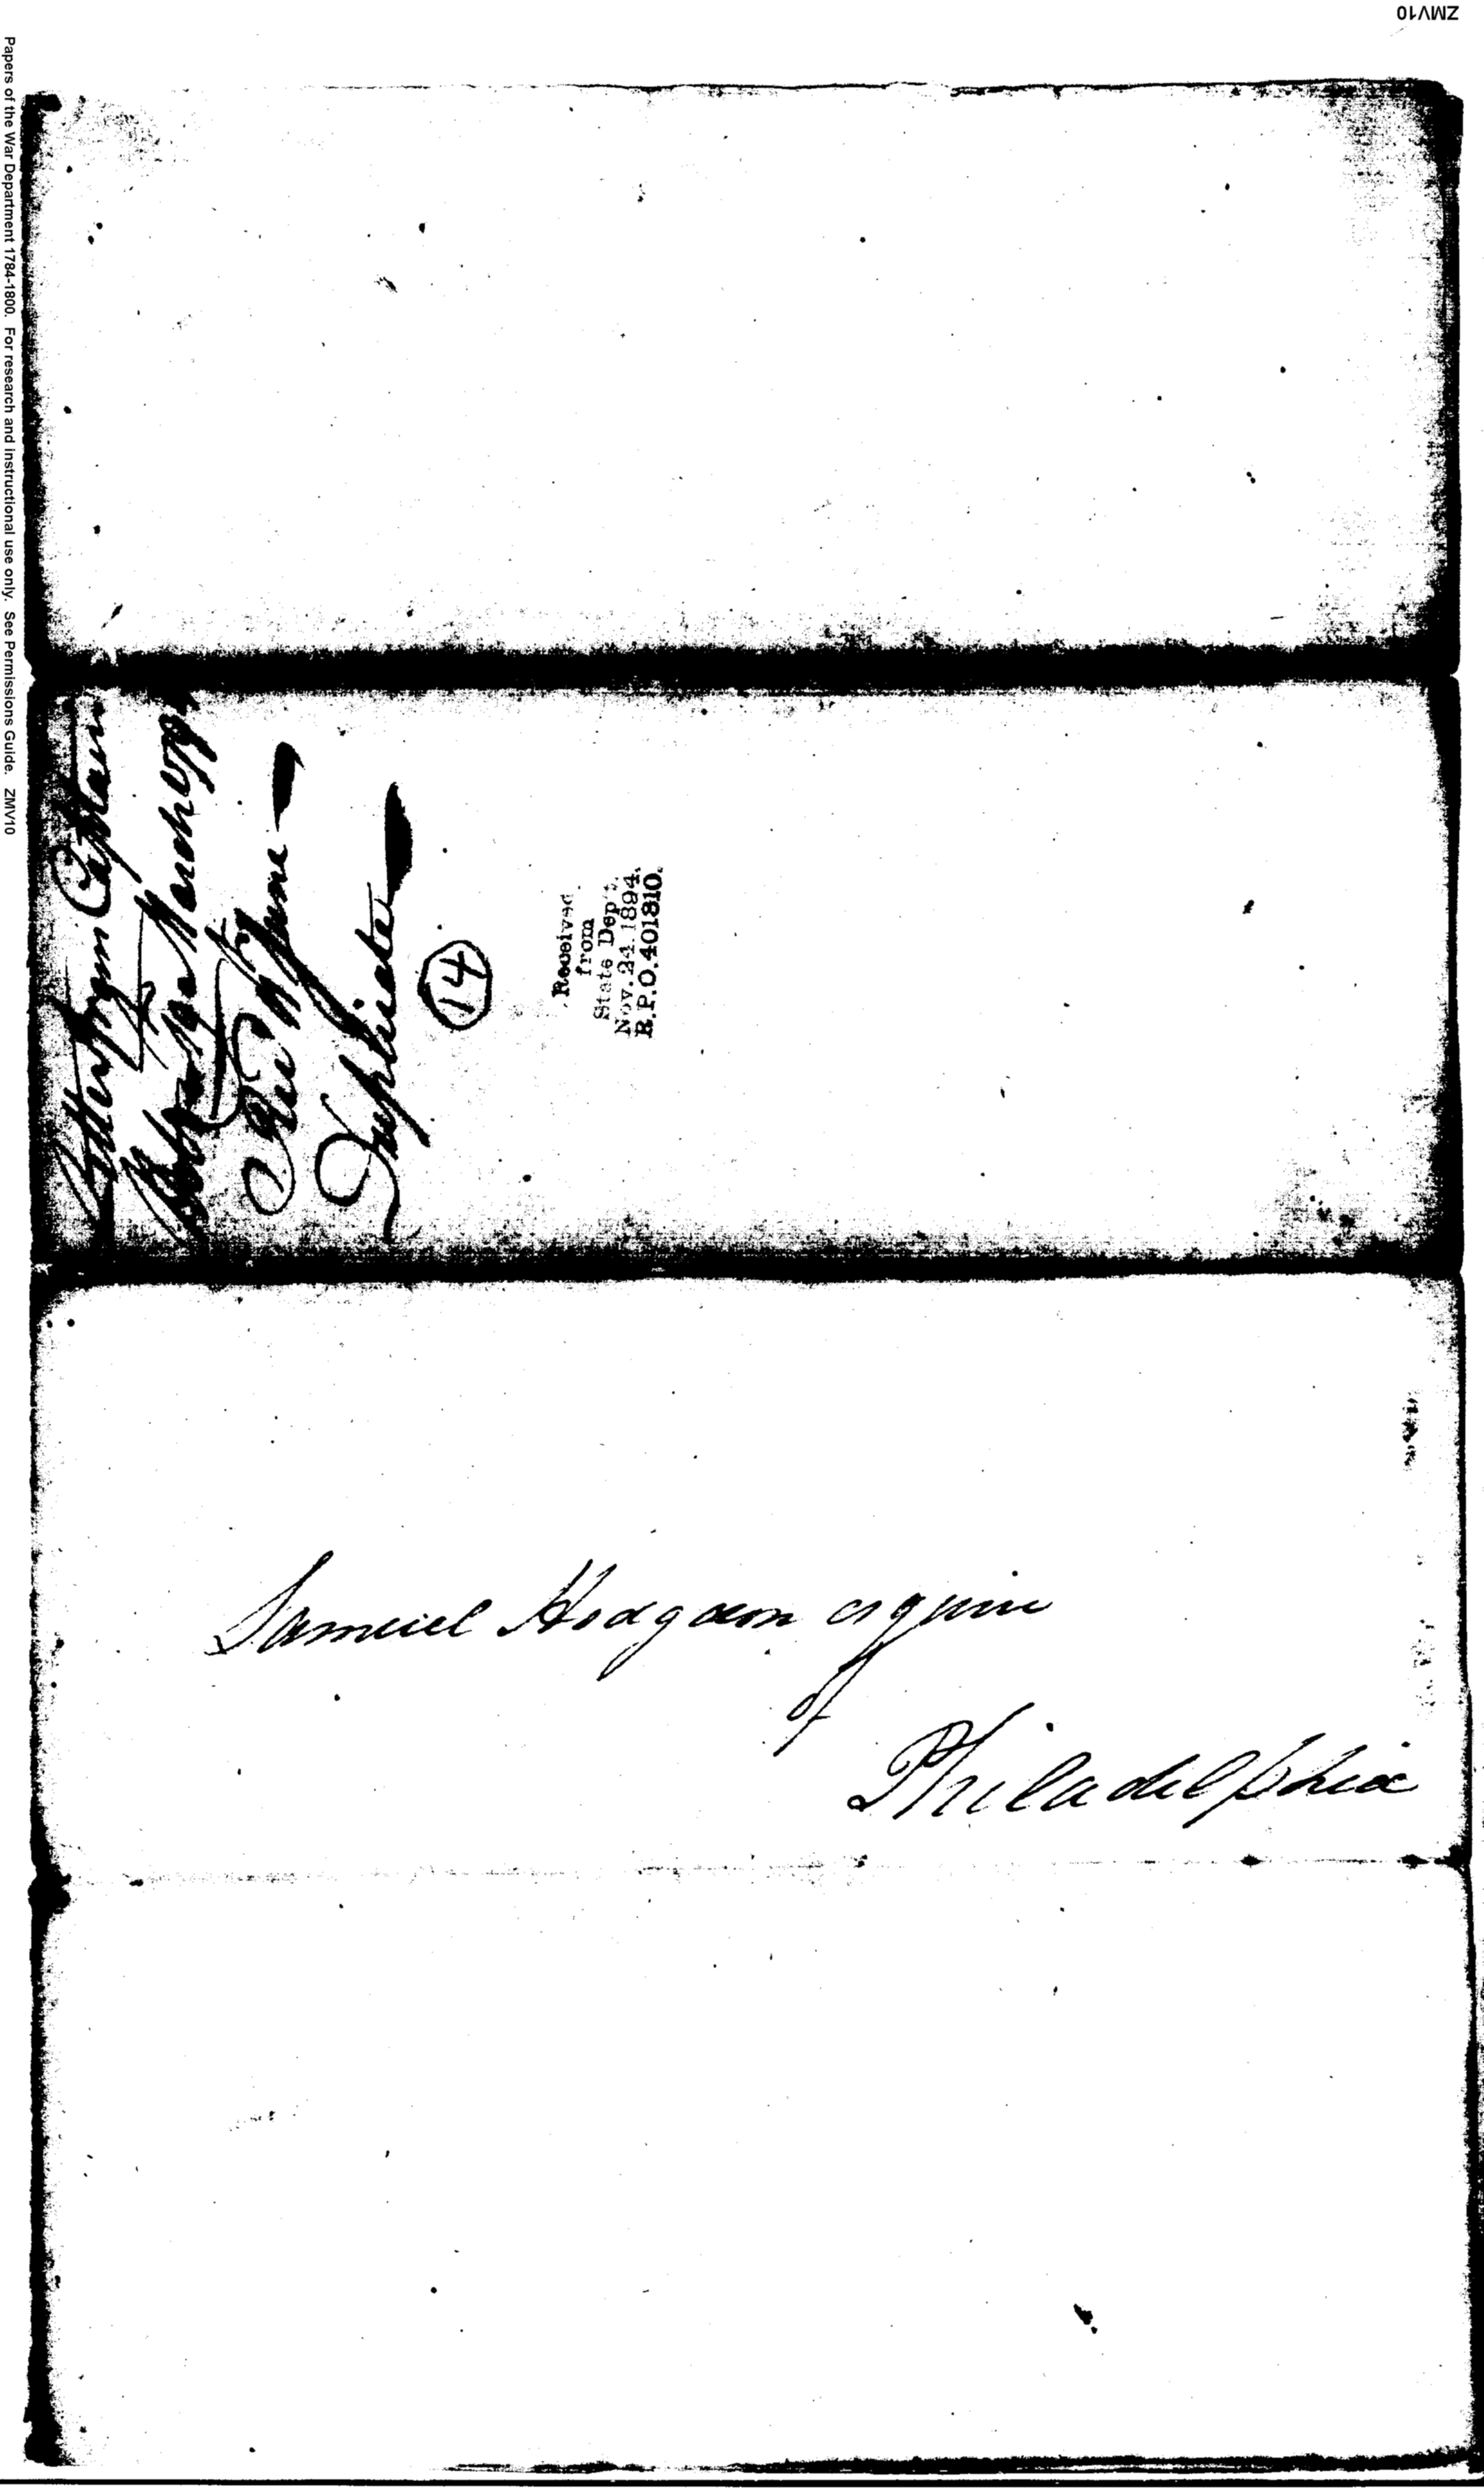 ZMV10
Papers of the War Department 1784-1800. For research and instructional use only. See Permissions Guide. ZMV10
Letter from Captain
March 1794
June
Duplicate
14
Received
from
State Dep't.
Nov. 24. 1894.
R.P.O. 401810.
Samuel Hodgdon esquire
of
Philadelphia